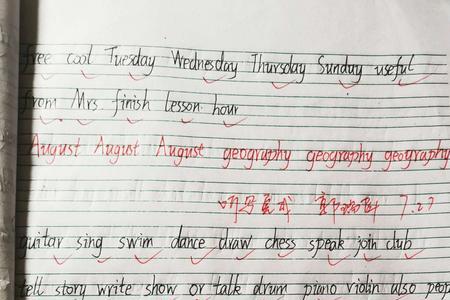 free cool Tuesday Wednesday Thursday Sunday useful
from Mrs finish lesson hour
August August August geography geography geography
7.27
guitar sing swim dance draw chess speak join club
tell story write show or talk drum piano violin also